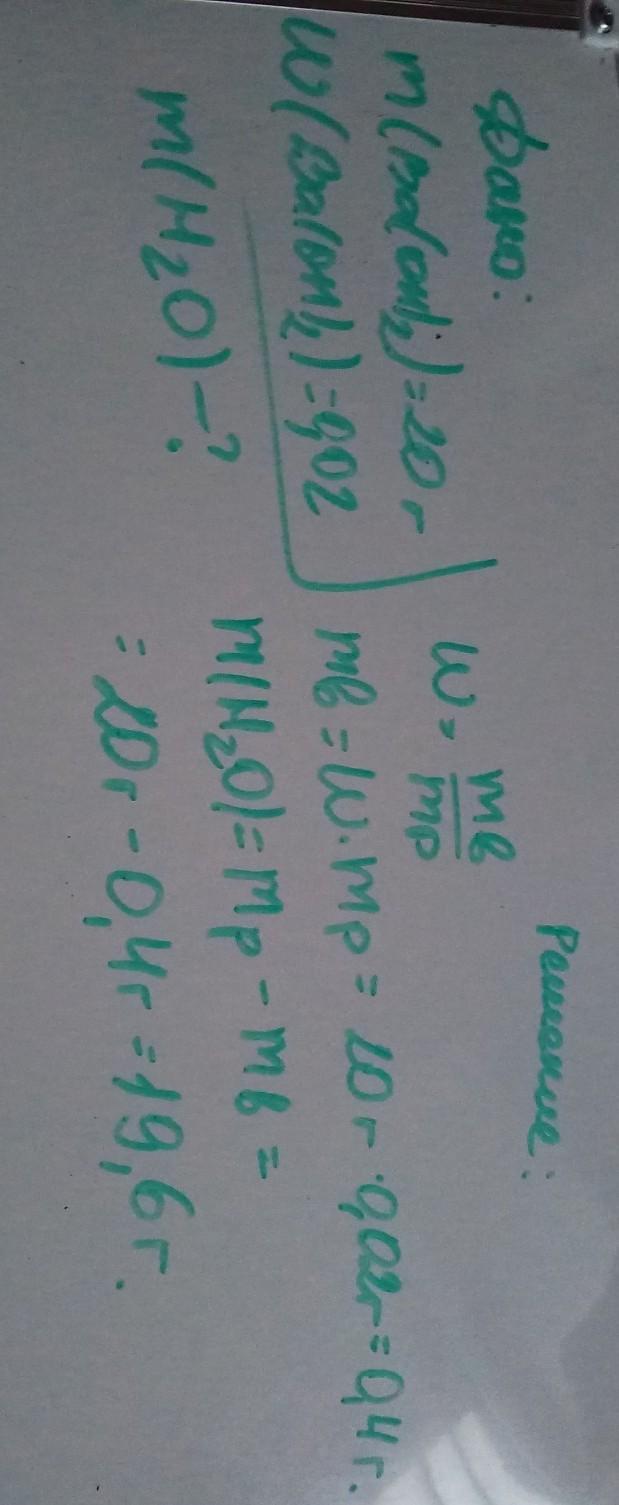 Дано:
m(Ba(OH)₂)=20 г
w(Ba(OH)₂)=0,02
m(H₂O)-?
Решение:
w = mв/mр
mв = w·mр = 20 г·0,02г=0,4 г.
m(H₂O)=mр - mв =
= 20г - 0,4г =19,6 г.